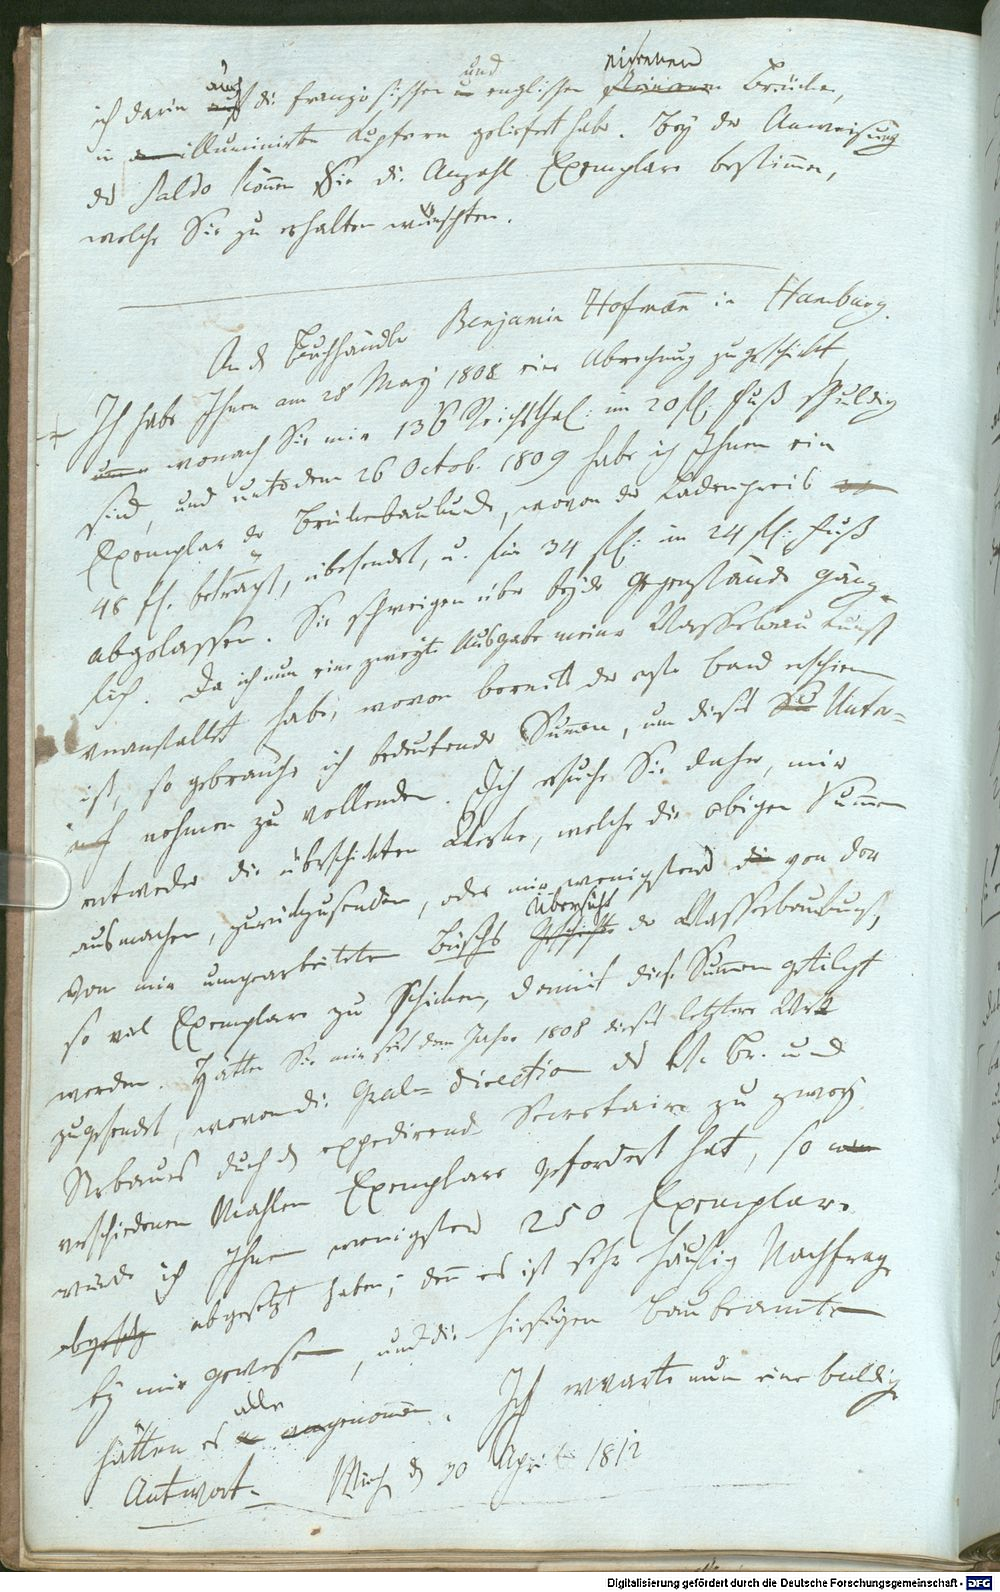 ich darin auch die französischen und englischen eisernen Brücken,
in illuminirten Kupfern geliefert habe. Bey der Anweisung
des Saldo können Sie die Anzahl Exemplare bestimmen,
welche Sie zu erhalten wünschten.
An d. Buchhändler Benjamin Hofmann in Hamburg.
Ich habe Ihnen am 28 May 1808 eine Abrechnung zugeschickt,
wonach Sie mir 136 Reichsthal: im 20 fl. Fuß schuldig
sind, und unterdem 26 Octob. 1809 habe ich Ihnen ein
Exemplar der Brückenbaukunde, wovon der Ladenpreis
48 fl. beträgt, übersendet, u. für 34 fl: im 24 fl: Fuß
abgelassen. Sie schweigen über beyde Gegenstände gänz=
lich. Da ich nun eine zweyte Ausgabe meiner Wasserbaukunst
veranstaltet habe, wovon bereits der erste Band erschienen
ist, so gebrauche ich bedeutende Summen, um dieses Unter=
nehmen zu vollenden. Ich ersuche Sie daher, mir
entweder die überschickten Werke, welche die obigen Summen
ausmachen, zurückzusenden, oder mir wenigstens von der
von mir umgearbeiteten Büschs Übersicht der Wasserbaukunst,
so viel Exemplare zu schicken, damit diese Summen getilgt
werden. Hätten Sie mir seit dem Jahre 1808 dieses letztere Werk
zugesendet, wovon die Gral=direction des W. Br. und
Strbaues durch d expedirend Secretaire zu zwey
verschiedenen Mahlen Exemplare gefordert hat, so
würde ich Ihnen wenigstens 250 Exemplare
abgesetzt haben; denn es ist sehr häufig Nachfrage
bey mir gewesen, und die hiesigen Baubeamten
hätten es alle genommen. Ich erwarte nun eine baldige
Antwort. Münch d 30 April 1812
Digitalisierung gefördert durch die Deutsche Forschungsgemeinschaft - DFG